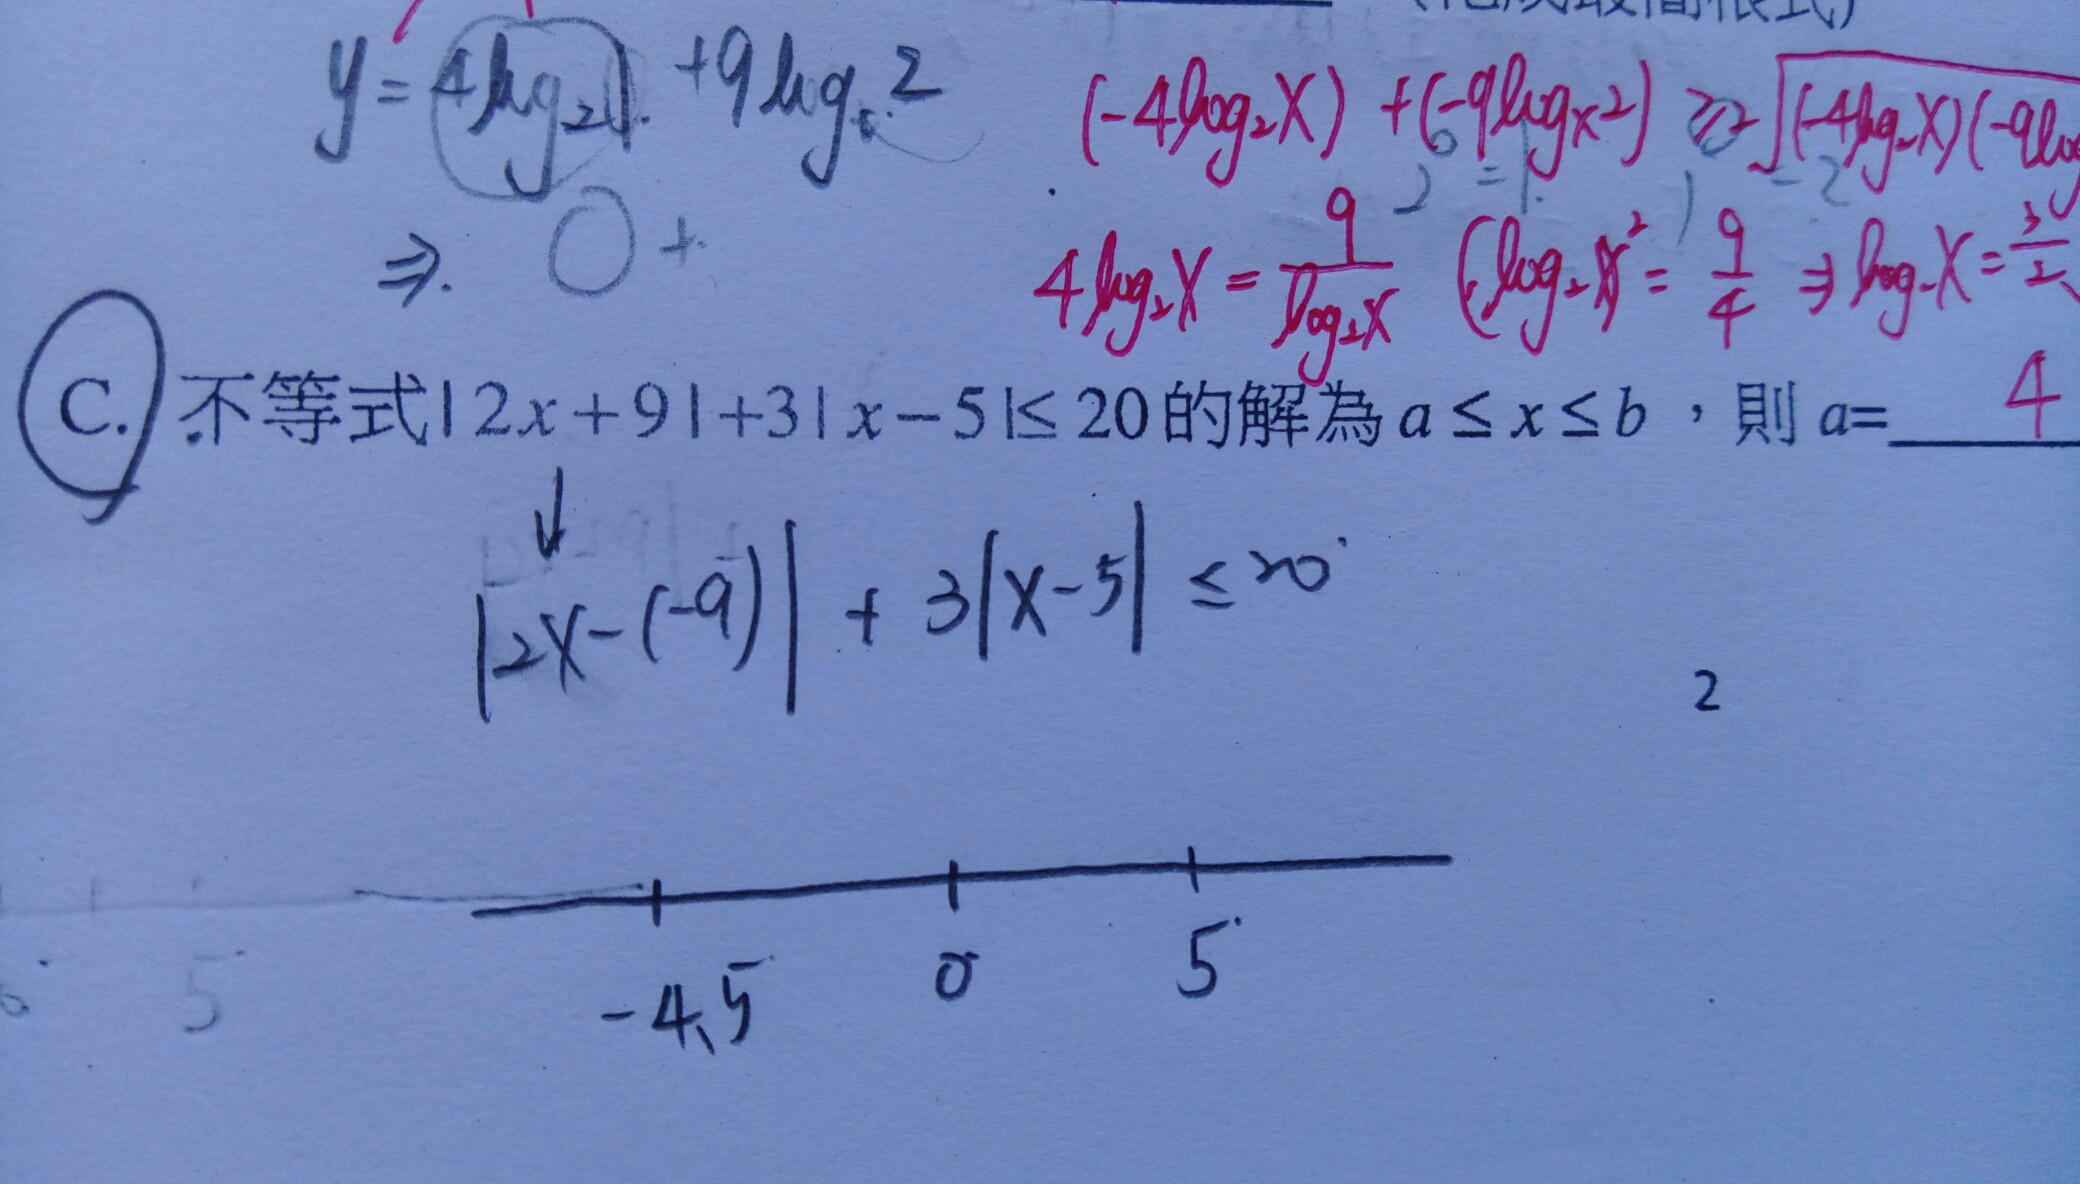 y = 4log₂1 + 9log 2
(-4log₂X) + (-9logₓ2) ≥ 2√(-4log₂X)(-9log
2⁰ = 1
⇒. 0 +
4log₂X = 9/log₂X (log₂X)² = 9/4 ⇒ log₂X = 3/2
C. 不等式|2x+9|+3|x-5|≤20的解為a≤x≤b，則a= 4
↓
|2X-(-9)| + 3|X-5| ≤ 20
2
-4.5 0 5
5